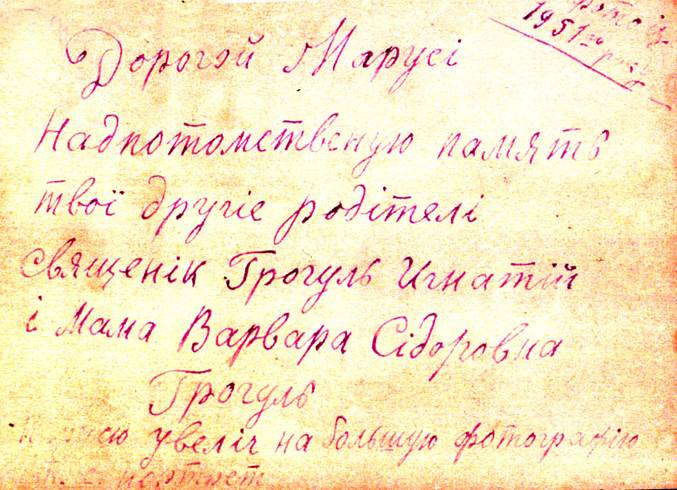 фото із
1951го року
Дорогой Марусі
Надпотомственую память
твої другіе родітелі
священік Грогуль Игнатій
і мама Варвара Сідоровна
Грогуль
увеліч на большую фотографію
портрет